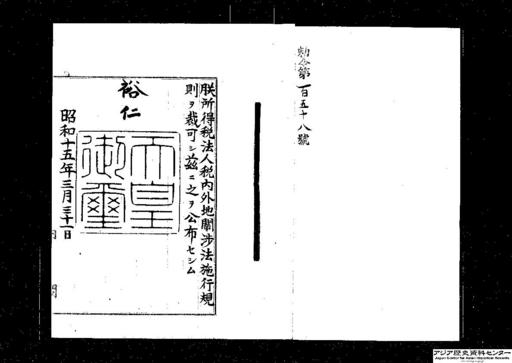 勅令第百五十八號
朕所得税法人税內外地關涉法施行規
則ヲ裁可シ茲ニ之ヲ公布セシム
裕仁
天皇
御璽
昭和十五年三月三十一日
アジア歴史資料センター
Japan Center for Asian Historical Records